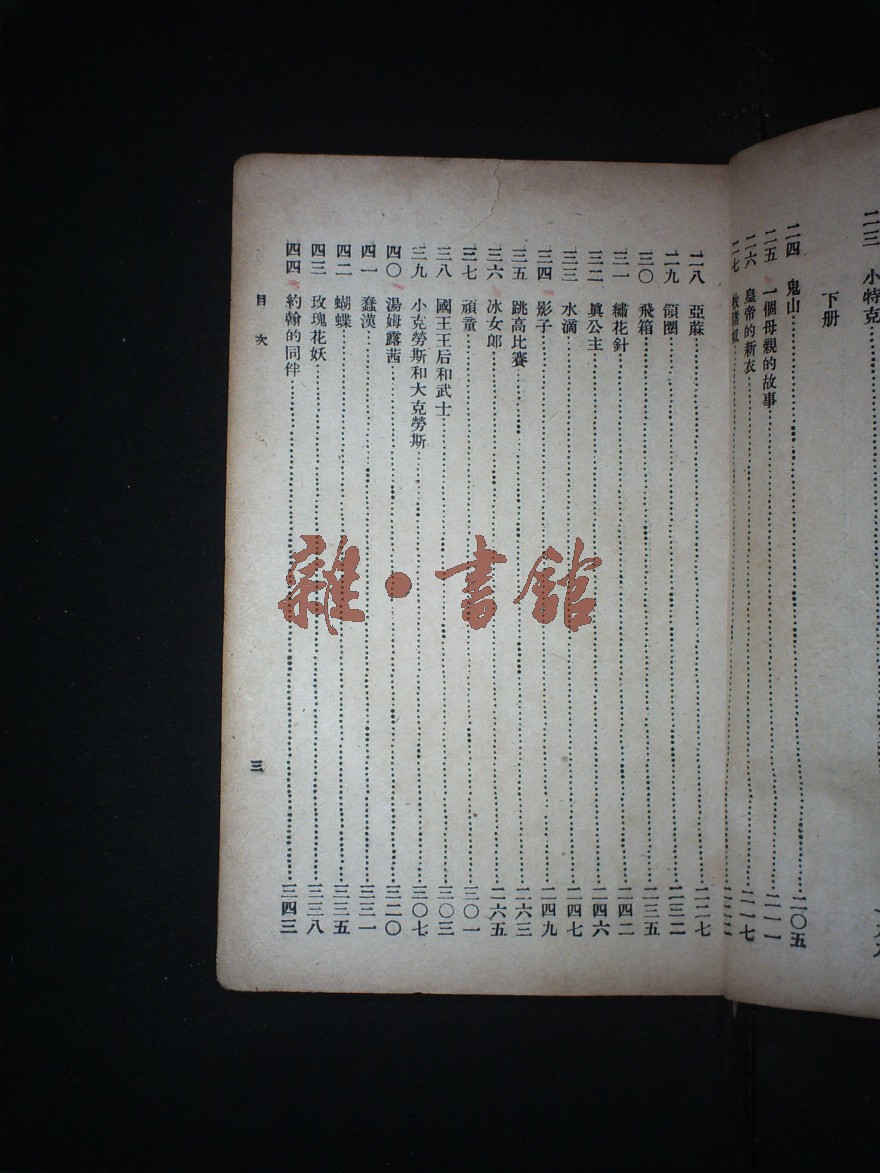 二三 小特克
下册
二四 鬼山 二〇五
二五 一個母親的故事 二一一
二六 皇帝的新衣 二一七
二七 二二二
二八 亞蔴 二二七
二九 領圈 二三二
三〇 飛箱 二三五
三一 繡花針 二四二
三二 眞公主 二四六
三三 水滴 二四七
三四 影子 二四九
三五 跳高比賽 二六三
三六 冰女郎 二六五
三七 頑童 三〇一
三八 國王王后和武士 三〇三
三九 小克勞斯和大克勞斯 三〇七
四〇 湯姆露茜 三二〇
四一 蠢漢 三三一
四二 蝴蝶 三三五
四三 玫瑰花妖 三三八
四四 約翰的同伴 三四三
目次
三
雜·書館